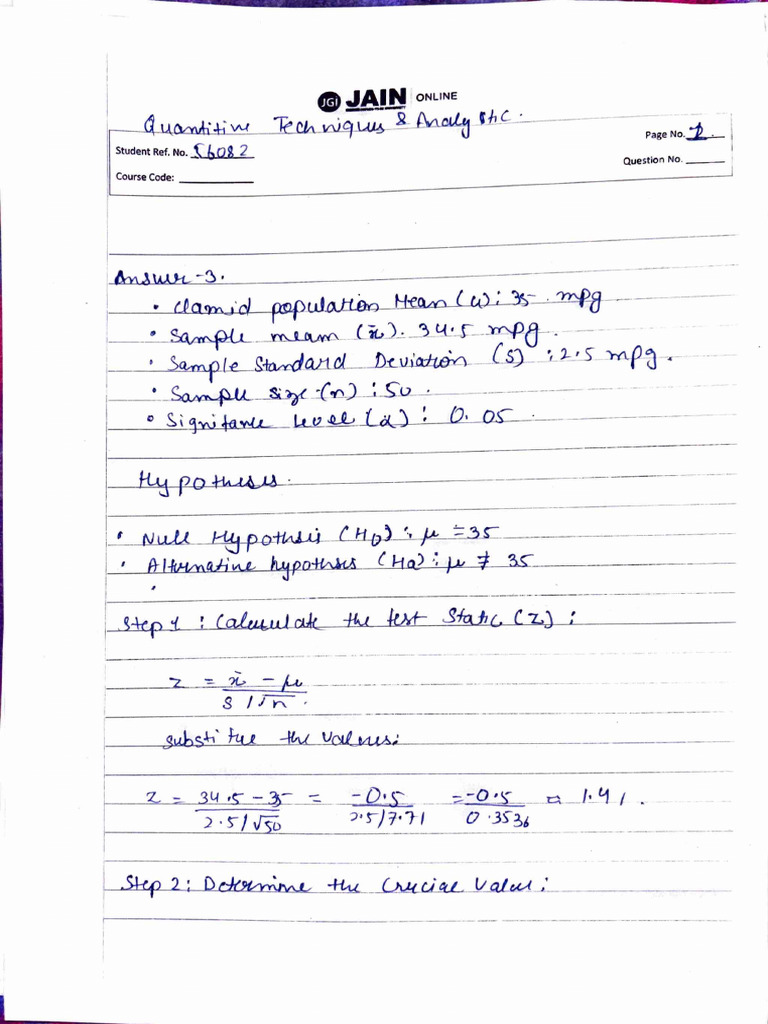 JGI JAIN ONLINE
Quantitive Techniques & Analystic.
Page No. 1
Student Ref. No. 56082
Question No.
Course Code:
Answer-3.
• Clamid population Mean (u): 35 mpg
• Sample meam (x̄). 34.5 mpg.
• Sample Standard Deviation (S) : 2.5 mpg.
• Sample size (n) : 50.
• Signitance level (α) : 0.05
Hypothesis.
• Null Hypothsis (H0) : μ = 35
• Alternative hypothsis (Ha) : μ ≠ 35
•
Step 1 : Calculate the test Static (Z) :
z = x̄ - μ
S/√n.
substitue the values:
z = 34.5 - 35 = -0.5 = -0.5 = 1.41.
2.5/√50 2.5/7.71 0.3536
Step 2: Determine the Crucial Value: